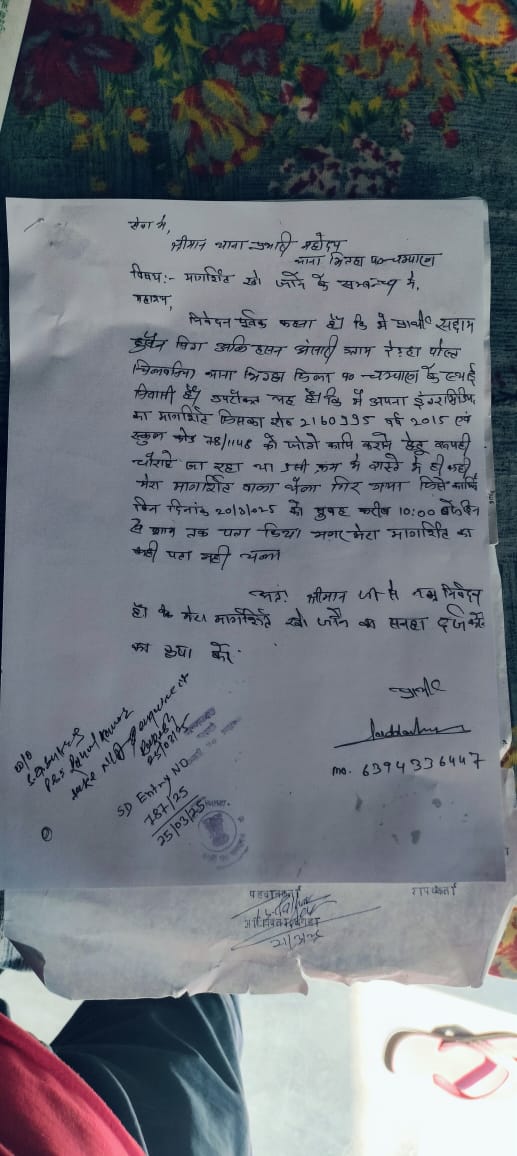 सेवा में,
श्रीमान थाना प्रभारी महोदय
थाना भितहा प० चम्पारण
विषय:- मार्गशिट खो जाने के सम्बन्ध में,
महाशय,
निवेदन पूर्वक कहना है कि मैं प्रार्थी सद्दाम
हुसैन पिता अंसारी ग्राम पोस्ट
थाना भितहा जिला प० चम्पारण के स्थाई
निवासी हूँ। उपरोक्त यह है कि मैं अपना इंटरमिडिएट
का मार्गशिट जिसका रोल 2160995 वर्ष 2015 एवं
स्कूल कोड 78/1148 को फोटो कापि कराने हेतु रूपही
चौराहे जा रहा था उसी क्रम में रास्ते में ही कही
मेरा मार्गशिट वाला थैला गिर गया जिसे काफि
दिन दिनांक 20/2/025 को सुबह करीब 10:00 बजे दिन
से शाम तक पता किया मगर मेरा मार्गशिट का
कही पता नही चला
अतः श्रीमान जी से नम्र निवेदन
है कि मेरा मार्गशिट खो जाने का सनहा दर्ज करने
का कृपा करें।
प्रार्थी
mo. 6394336447
O/D
take N/A
SD Entry NO
787/25
25/03/25